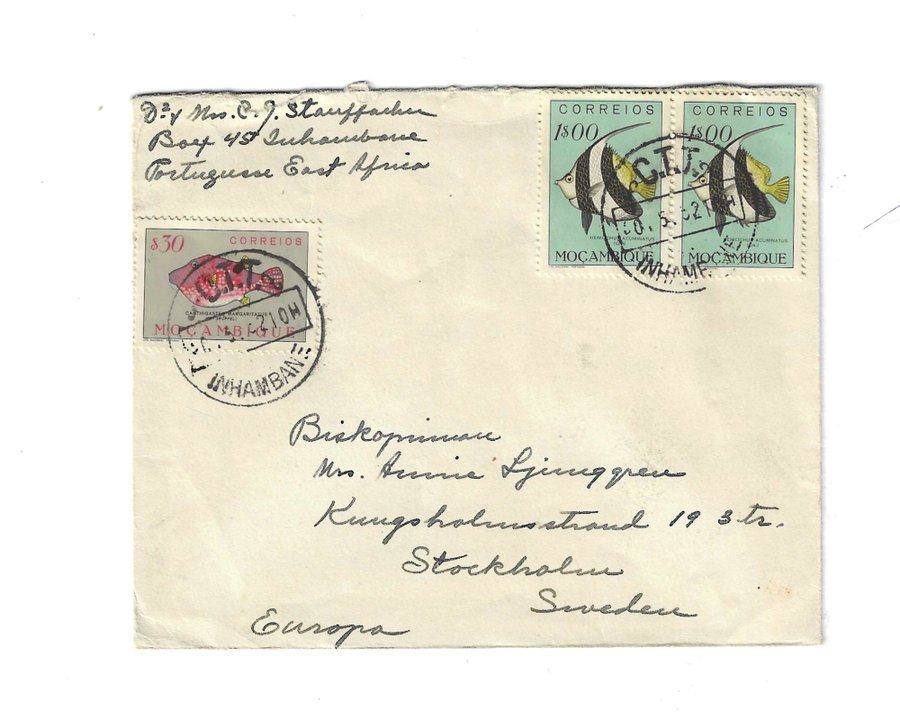 Dr & Mrs. C. J. Stauffacher
Box 45 Inhambane
Portuguese East Africa
CORREIOS
1$00
MOÇAMBIQUE
HENIOCHUS ACUMINATUS
CORREIOS
1$00
HENIOCHUS ACUMINATUS
MOÇAMBIQUE
C.T.T.
INHAMB
$30 CORREIOS
CANTHIGASTER MARGARITATUS
MOÇAMBIQUE
C.T.T.
INHAMBANE
Biskopinnan
Mrs. Annie Ljunggren
Kungsholmsstrand 19 3 tr.
Stockholm
Sweden
Europa